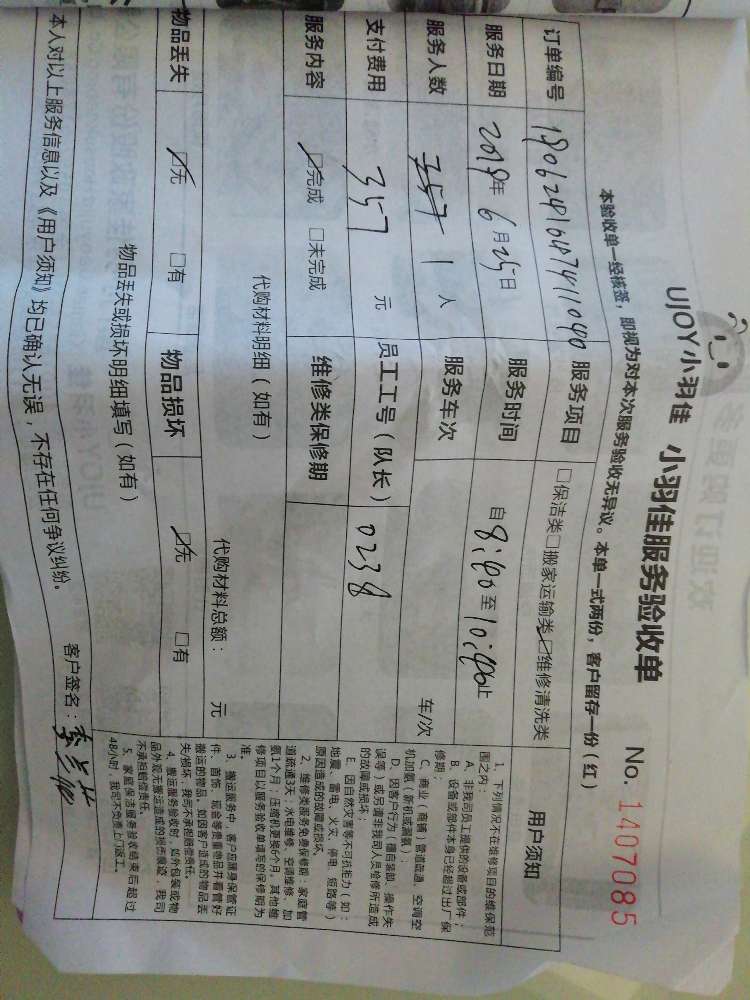 UJOY小羽佳 小羽佳服务验收单 No. 1407085
本验收单一经核签，即视为对本次服务验收无异议。本单一式两份，客户留存一份（红）
订单编号 1806248164874110490 服务项目 □保洁类□搬家运输类☑维修清洗类
服务日期 2018年 6月25日 服务时间 自8:40至10:40止
服务人数 1 人 服务车次 车/次
支付费用 357 元 员工工号（队长） 0238
服务内容 ☑完成 □未完成 维修类保修期
代购材料明细（如有）
代购材料总额： 元
物品丢失 ☑无 □有 物品损坏 ☑无 □有
物品丢失或损坏明细填写（如有）
本人对以上服务信息以及《用户须知》均已确认无误，不存在任何争议纠纷。
客户签名：
用户须知
1、下列情况不在维修项目的维保范
围之内：
A、非我司员工提供的设备或部件；
B、设备或部件本身已经超过出厂保
修期；
C、商业（商铺）管道疏通、空调空
机加氨（新机或漏氨）；
D、因客户行为（擅自装卸、操作失
误等）或另请非我司人员检修所造成
的故障或损坏；
E、因自然灾害等不可抗拒力（如：
地震、雷电、火灾、停电、短路等）
原因造成的故障或损坏。
2、维修类服务免费保修期：家庭管
道疏通3天；水电维修、空调维修、加
氨1个月；压缩机更换6个月，其他维
修项目以服务验收单填写的保修期为
准。
3、搬运服务中，客户应随身保管证
件、首饰、现金等贵重物品并看管好
搬运的物品。如因客户返还的物品丢
失/损坏，我司不承担赔偿责任。
4、搬运服务验收时，如外包装或物
品外观无搬运造成的损伤痕迹，我司
不承担赔偿责任。
5、家庭保洁服务验收结束后超过
48小时，我司不免费上门返工。